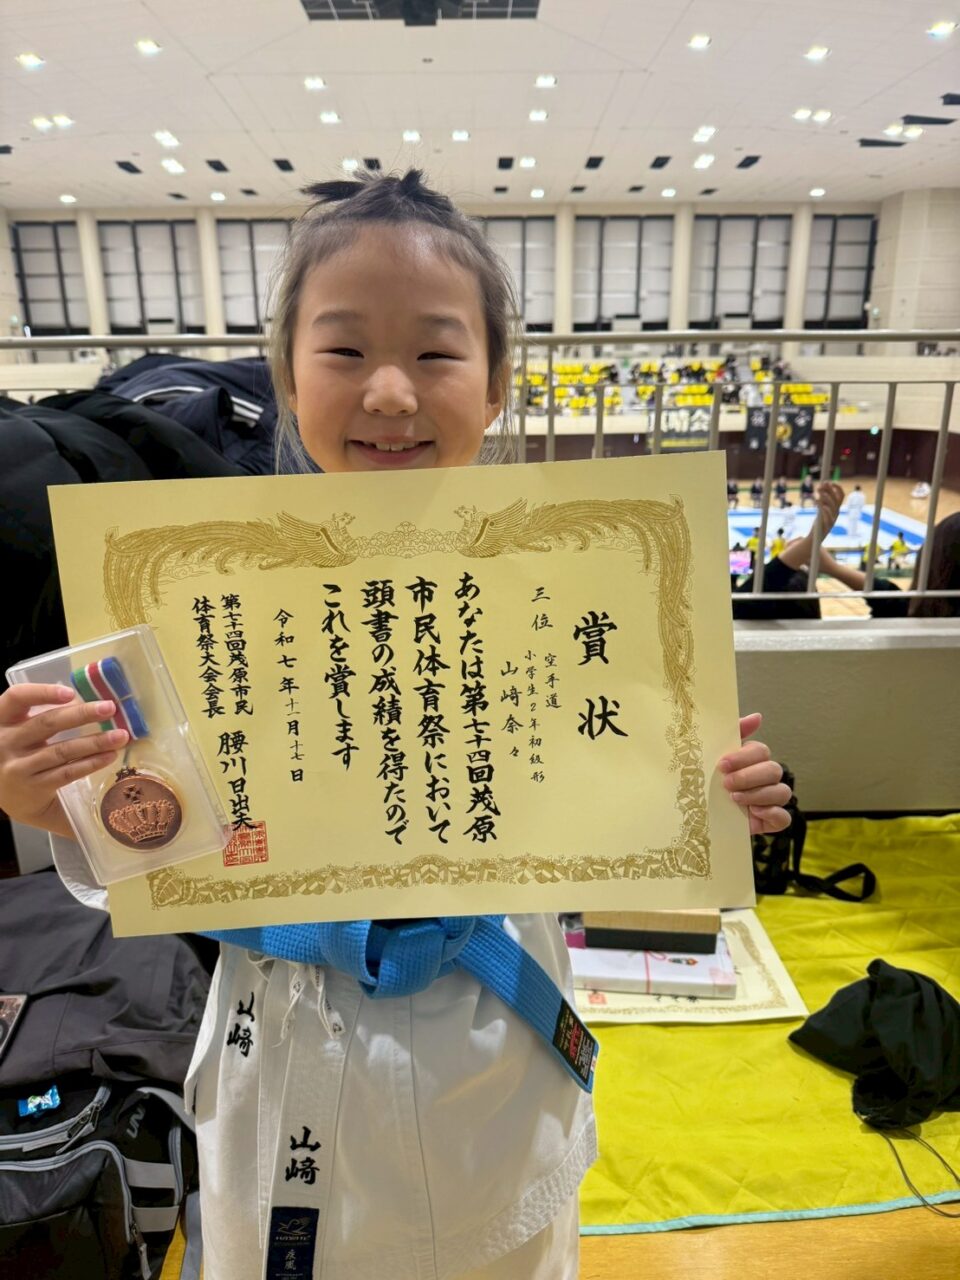 賞状
三位
空手道
小学生2年初級形
山﨑奈々
あなたは第七十四回茂原
市民体育祭において
頭書の成績を得たので
これを賞します
令和七年十一月十七日
第七十四回茂原市民
体育祭大会会長
腰川日出夫
山﨑
山﨑
疾風